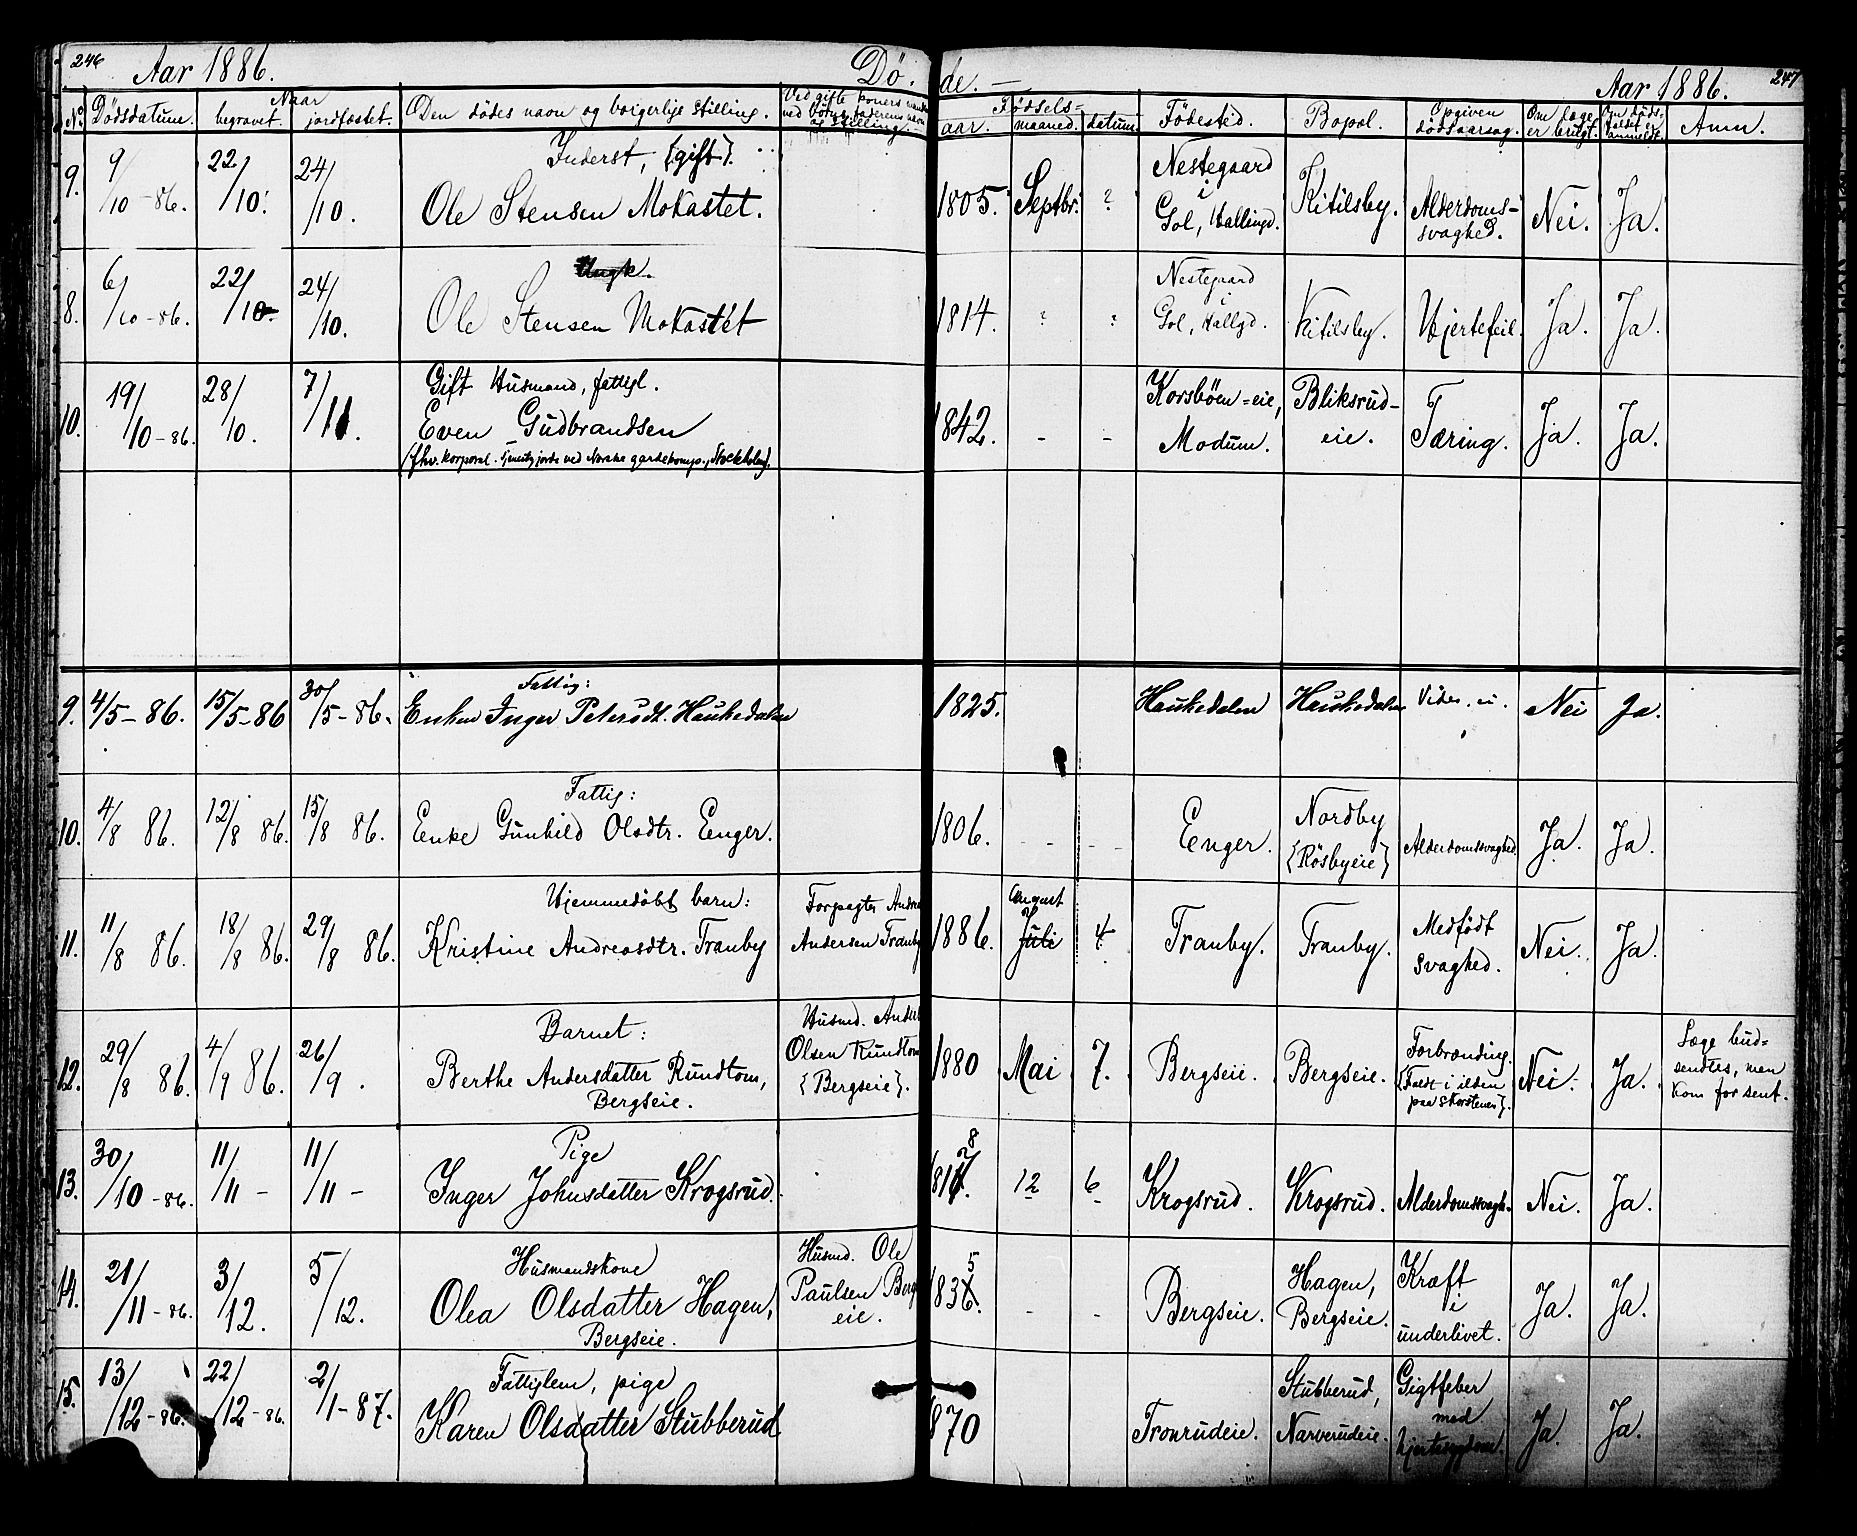 246 Aar 1886. Dø- de. — Aar 1886. 247
No. Dødsdatum. Naar begravet. jordfæstet. Den dødes navn og borgerlige stilling. Ved gifte koners mands ved børns faderens navn og stilling. Fødsels- aar. maaned. datum. Fødested. Bopæl. Opgiven dødsaarsag. Om læge er brugt. Om døds- faldet er anmeldt. Anm.
Inderst, {gift}.
9. 9/10-86. 22/10. 24/10. Ole Stensen Mokastet. 1805. Septbr. ? Nestegaard i Gol, Hallingd. Kitilsby. Alderdoms- svaghed. Nei. Ja.
Ungk.
8. 6/10-86. 22/10. 24/10. Ole Stensen Mokastet 1814. ? ? Nestegaard i Gol, Hallgd. Kitilsby. Hjertefeil. Ja. Ja.
Gift Husmand, fattigl.
10. 19/10-86. 28/10. 7/11. Even Gudbrandsen 1842. - - Korsbøen-eie, Modum. Bliksrud- eie. Tæring. Ja. Ja.
(fhv. korporal. ved Norske gardekomp., Stockholm).
Fattig:
9. 4/5-86. 15/5-86 30/5-86. Enken Inger Petersdt. Haukedalen 1825. Haukedalen Haukedalen Nei Ja.
Fattig:
10. 4/8 86. 12/8 86. 15/8 86. Enke Gunhild Olsdtr. Enger. 1806. - - Enger. Nordby {Røsbyeie} Alderdomssvaghed. Ja. Ja.
Hjemmedøbt barn:
11. 11/8 86. 18/8 86. 29/8 86. Kristine Andreasdtr. Tranby Forpagter Andreas Andersen Tranby 1886. August Juli 4. Tranby. Tranby. Medfødt svaghed. Nei. Ja.
Barnet:
12. 29/8 86. 4/9 86. 26/9. Berthe Andersdatter Rundtom, Bergseie. Husmd. Anders Olsen Rundtom {Bergseie}. 1880 Mai 7. Bergseie. Bergseie. Forbrænding. {Faldt i ilden paa skorstenen}. Nei. Ja. Læge bud- sendtes, men kom for sent.
Pige
13. 30/10-86. 11/11- 11/11- Inger Johnsdatter Krogsrud. 12 6 Krogsrud. Krogsrud. Alderdomssvagh. Nei. Ja.
Husmandskone
14. 21/11-86. 3/12. 5/12. Olea Olsdatter Hagen, Bergseie. Husmd. Ole Paulsen Bergs- eie. 5 1836. - - Bergseie. Hagen, Bergseie. Kræft i underlivet. Ja. Ja.
Fattiglem, pige
15. 13/12-86. 22/12-86. 2/1-87. Karen Olsdatter Stubberud 1870 Tronrudeie. Stubberud, Narverudeie. Gigtfeber med hjertesygdom. Ja. Ja.